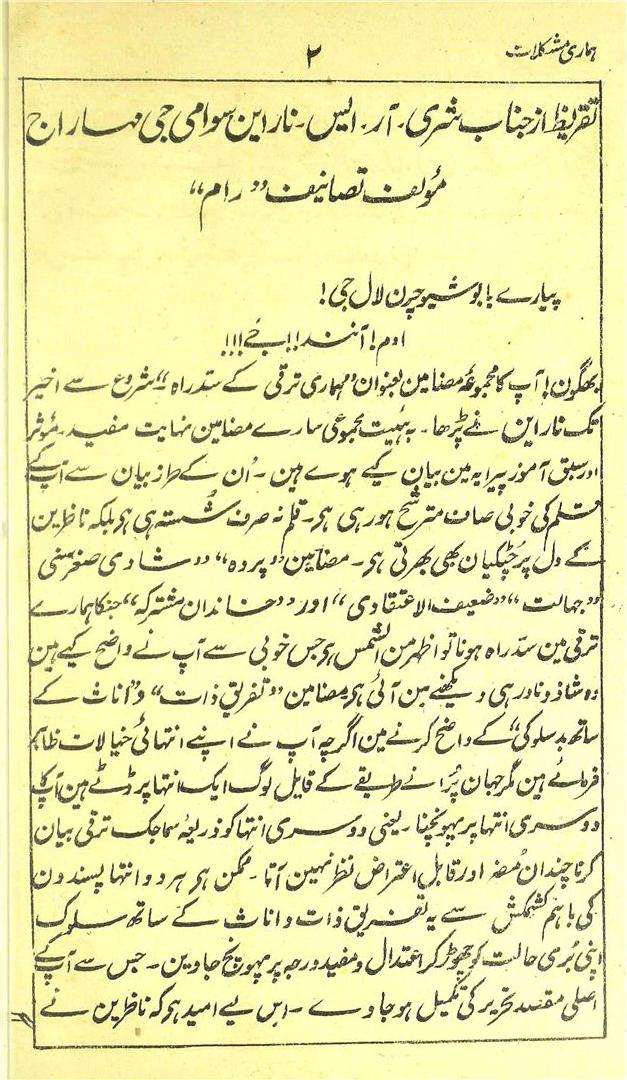 ہماری مشکلات
۲
تقریظ از جناب شری۔ آر۔ ایس۔ ناراین سوامی جی مہاراج
مؤلف تصانیف ”رام“
پیارے بابو شیوچرن لال جی!
اوم! آنند!! جَے!!!
بھگون! آپ کا مجموعۂ مضامین بعنوان ”ہماری ترقی کے سدّ راہ“ شروع سے اخیر
تک ناراین نے پڑھا۔ بہ ہیئت مجموعی سارے مضامین نہایت مفید۔ مؤثر
اور سبق آموز پیرایہ مین بیان کیے ہوے ہین۔ اُن کے طرز بیان سے آپ کے
قلم کی خوبی صاف مترشح ہو رہی ہو۔ قلم نہ صرف شُستہ ہی ہو بلکہ ناظرین
کے دل پر چٹکیان بھی بھرتی ہو۔ مضامین ”پردہ“ ”شادی صغر سنی
”جہالت“ ”ضعیف الاعتقادی“ اور ”خاندان مشترکہ“ جنکا ہمارے
ترقی مین سدّ راہ ہونا تو اظہر من الشمس ہو جس خوبی سے آپ نے واضح کیے ہین
وہ شاذ و نادر ہی دیکھنے مین آئی ہو مضامین ”تفریق ذات“ و ”اناث کے
ساتھ بدسلوکی“ کے واضح کرنے مین اگرچہ آپ نے اپنے انتہائی خیالات ظاہر
فرمائے ہین مگر جہان پُرانے طریقے کے قایل لوگ ایک انتہا پر ڈٹے ہین آپکا
دوسری انتہا پر پہونچنا۔ یعنی دوسری انتہا کو ذریعۂ سماجک ترقی بیان
کرنا چندان مُضر اور قابل اعتراض نظر نہین آتا۔ ممکن ہو ہر دو انتہا پسندون
کی باہم کشمکش سے یہ تفریق ذات و اناث کے ساتھ سلوک
اپنی بُری حالت کو چھوڑ کر اعتدال و مفید درجہ پر پہونچ جاوین۔ جس سے آپ کے
اصلی مقصد تحریر کی تکمیل ہو جاوے۔ اِس لیے امید ہو کہ ناظرین نے